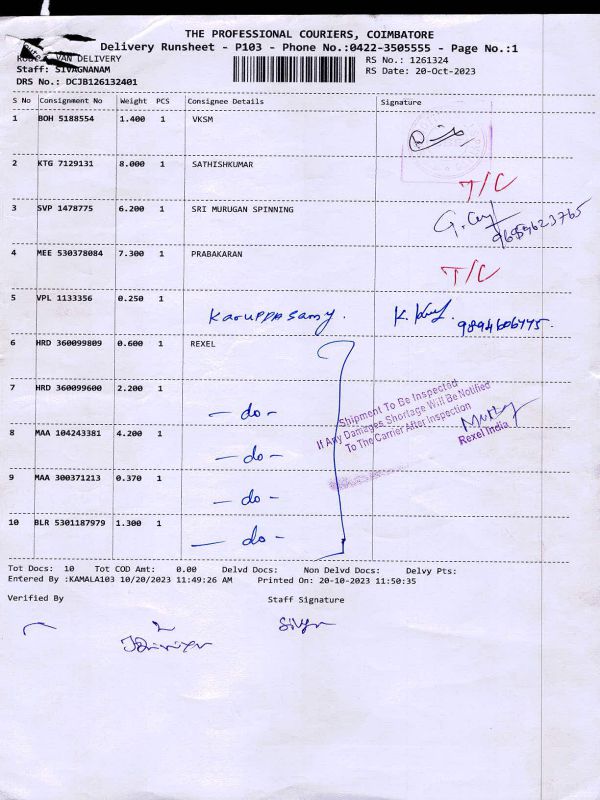 THE PROFESSIONAL COURIERS, COIMBATORE
Delivery Runsheet - P103 - Phone No.:0422-3505555 - Page No.:1
VAN DELIVERY
RS No.: 1261324
Staff: SIVAGNANAM
RS Date: 20-Oct-2023
DRS No.: DCJB126132401
S No Consignment No Weight PCS Consignee Details Signature
1 BOH 5188554 1.400 1 VKSM
2 KTG 7129131 8.000 1 SATHISHKUMAR T/C
3 SVP 1478775 6.200 1 SRI MURUGAN SPINNING
4 MEE 530378084 7.300 1 PRABAKARAN T/C
5 VPL 1133356 0.250 1 Karuppasamy.
6 HRD 360099809 0.600 1 REXEL
7 HRD 360099600 2.200 1 - do -
8 MAA 104243381 4.200 1 - do -
9 MAA 300371213 0.370 1 - do -
10 BLR 5301187979 1.300 1 - do -
Shipment To Be Inspected
If Any Damages Shortage Will Be Notified
To The Carrier After Inspection
Rexel India
Tot Docs: 10 Tot COD Amt: 0.00 Delvd Docs: Non Delvd Docs: Delvy Pts:
Entered By :KAMALA103 10/20/2023 11:49:26 AM Printed On: 20-10-2023 11:50:35
Verified By Staff Signature